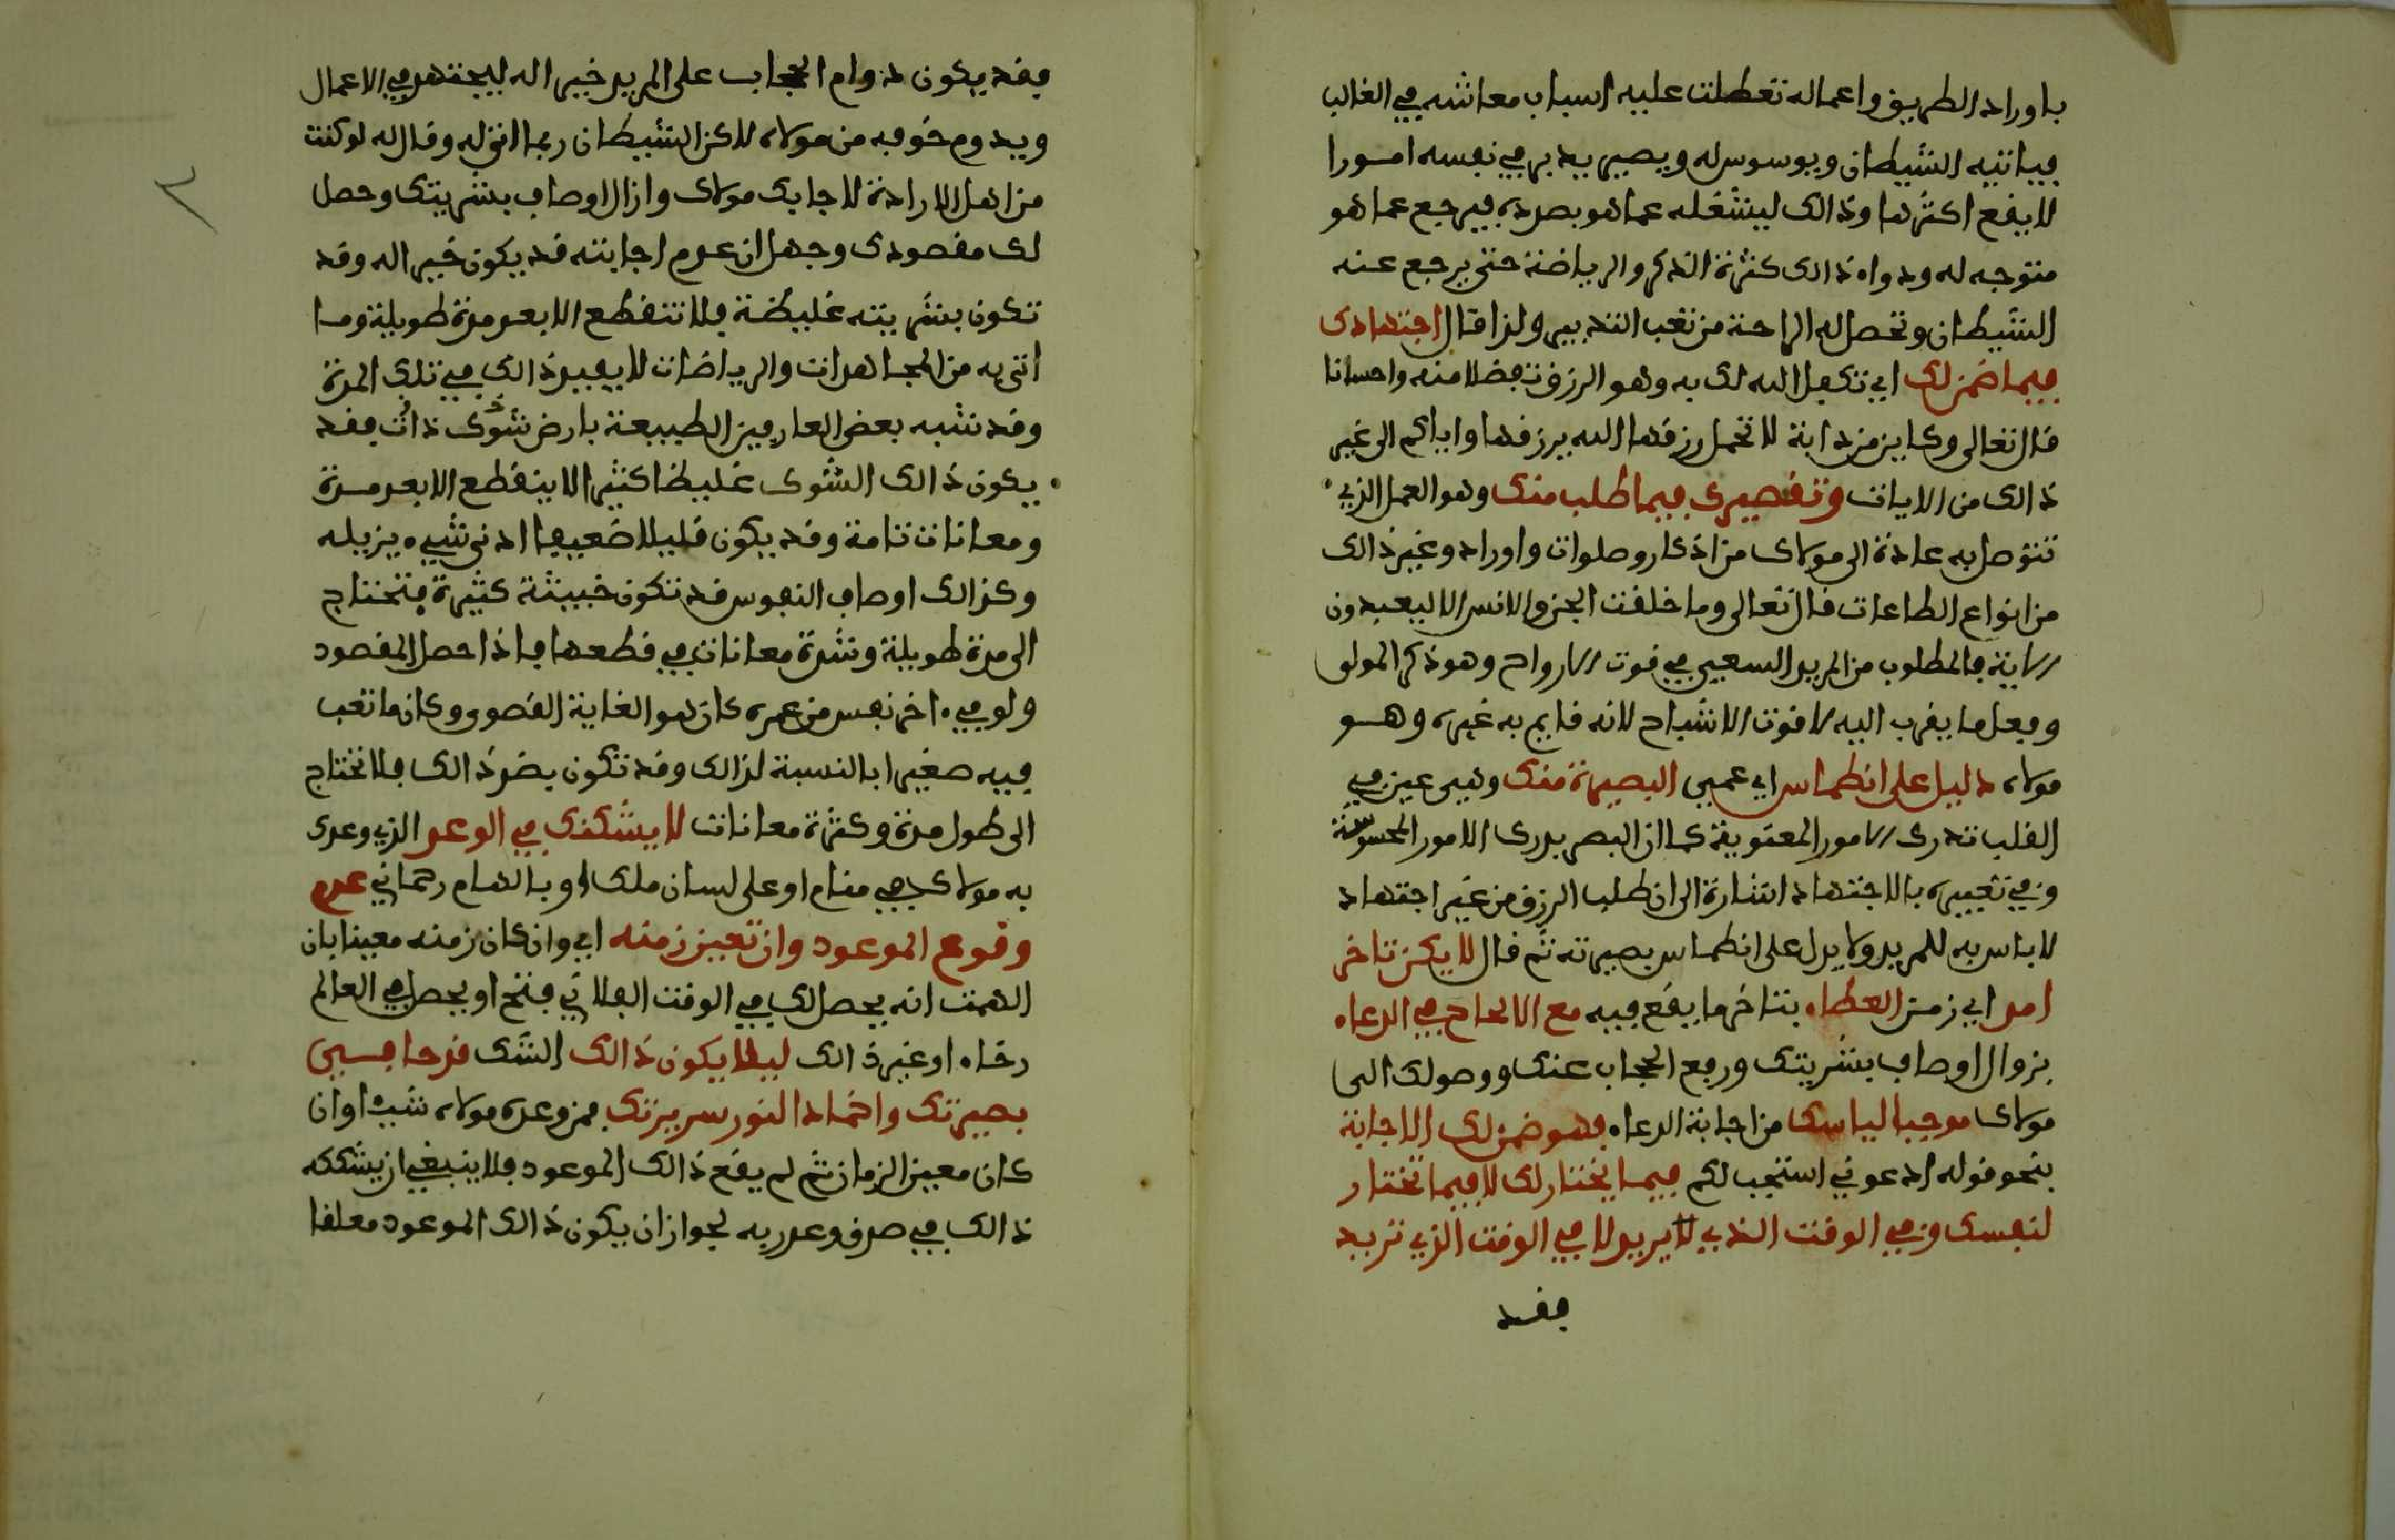 باوراد الطريق واعماله تعطلت عليه اسباب معاشه في الغالب
فياتيه الشيطان ويوسوس له ويصير يدبر في نفسه امورا
لا يقع اكثرها وذالك ليشغله عما هو بصدده فيرجع عما هو
متوجه له ودواه ذالك كثرة الذكر والرياضة حتى يرجع عنه
الشيطان وتحصل له الراحة من تعب التدبير ولذا قال اجتهادك
فيما ضمن لك اي تكفل الله لك به وهو الرزق تفضلا منه واحسانا
قال تعالى وكاين من دابة لا تحمل رزقها الله يرزقها واياكم الى غير
ذالك من الايات وتقصيرك فيما طلب منك وهو العمل الذي
تتوصل به عادة الى مولاك من اذكار وصلوات واوراد وغير ذالك
من انواع الطاعات قال تعالى وما خلقت الجن والانس الا ليعبدون
الاية فالمطلوب من المريد السعي في قوت الارواح وهو ذكر المولى
وفعل ما يقرب اليه لا قوت الاشباح لانه قايم به غيره وهو
مولاه دليل على انطماس اي عمى البصيرة منك وهي عين في
القلب تدرك الامور المعنوية كما ان البصر يدرك الامور المحسوسة
وفي تعبيره بالاجتهاد اشارة الى ان طلب الرزق من غير اجتهاد
لا باس به للمريد ولا يدل على انطماس بصيرته ثم قال لا يكن تاخر
امد اي زمن العطاء بتاخر ما يقع فيه مع الالحاح في الدعاء
بزوال اوصاف بشريتك ورفع الحجاب عنك ووصولك الى
مولاك موجبا لياسك من اجابة الدعاء فهو ضمن لك الاجابة
بنحو قوله ادعوني استجب لكم فيما يختار لك لا فيما تختار
لنفسك وفي الوقت الذي يريد لا في الوقت الذي تريد
فقد
فقد يكون دوام الحجاب على المريد خيرا له ليجتهد في الاعمال
ويدوم خوفه من مولاه لاكن الشيطان ربما اتى له وقال له لو كنت
من اهل الارادة لاجابك مولاك وازال اوصاف بشريتك وحصل
لك مقصودك وجهل ان عدم اجابته قد يكون خيرا له وقد
تكون بشريته غليظة فلا تنقطع الا بعد مدة طويلة وما
اتى به من المجاهدات والرياضات لا يفيد ذالك في تلك المدة
وقد شبه بعض العارفين الطبيعة بارض شوك ذات فقد
يكون ذالك الشوك غليظا كثيرا لا ينقطع الا بعد مدة
ومعانات تامة وقد يكون قليلا ضعيفا ادنى شيء يزيله
وكذالك اوصاف النفوس قد تكون خبيثة كثيرة فتحتاج
الى مدة طويلة وشدة معانات في قطعها فاذا حصل المقصود
ولو في ءاخر نفس من عمره كان هو الغاية القصوى وكان ما تعب
فيه صغيرا بالنسبة لذالك وقد تكون بضد ذالك فلا تحتاج
الى طول مدة وكثرة معانات لا يشككنك في الوعد الذي وعدك
به مولاك في منام او على لسان ملك او بالهام رحماني عدم
وقوع الموعود وان تعين زمنه اي وان كان زمنه معينا بان
الهمت انه يحصل لك في الوقت الفلاني فتح او يحصل في العالم
رخاء او غير ذالك ليلا يكون ذالك الشك قدحا في
بصيرتك واخمادا لنور سريرتك فمن وعده مولاه شيئا وان
كان معين الزمان ثم لم يقع ذالك الموعود فلا ينبغي ان يشككه
ذالك في صدق وعد ربه لجواز ان يكون ذالك الموعود معلقا